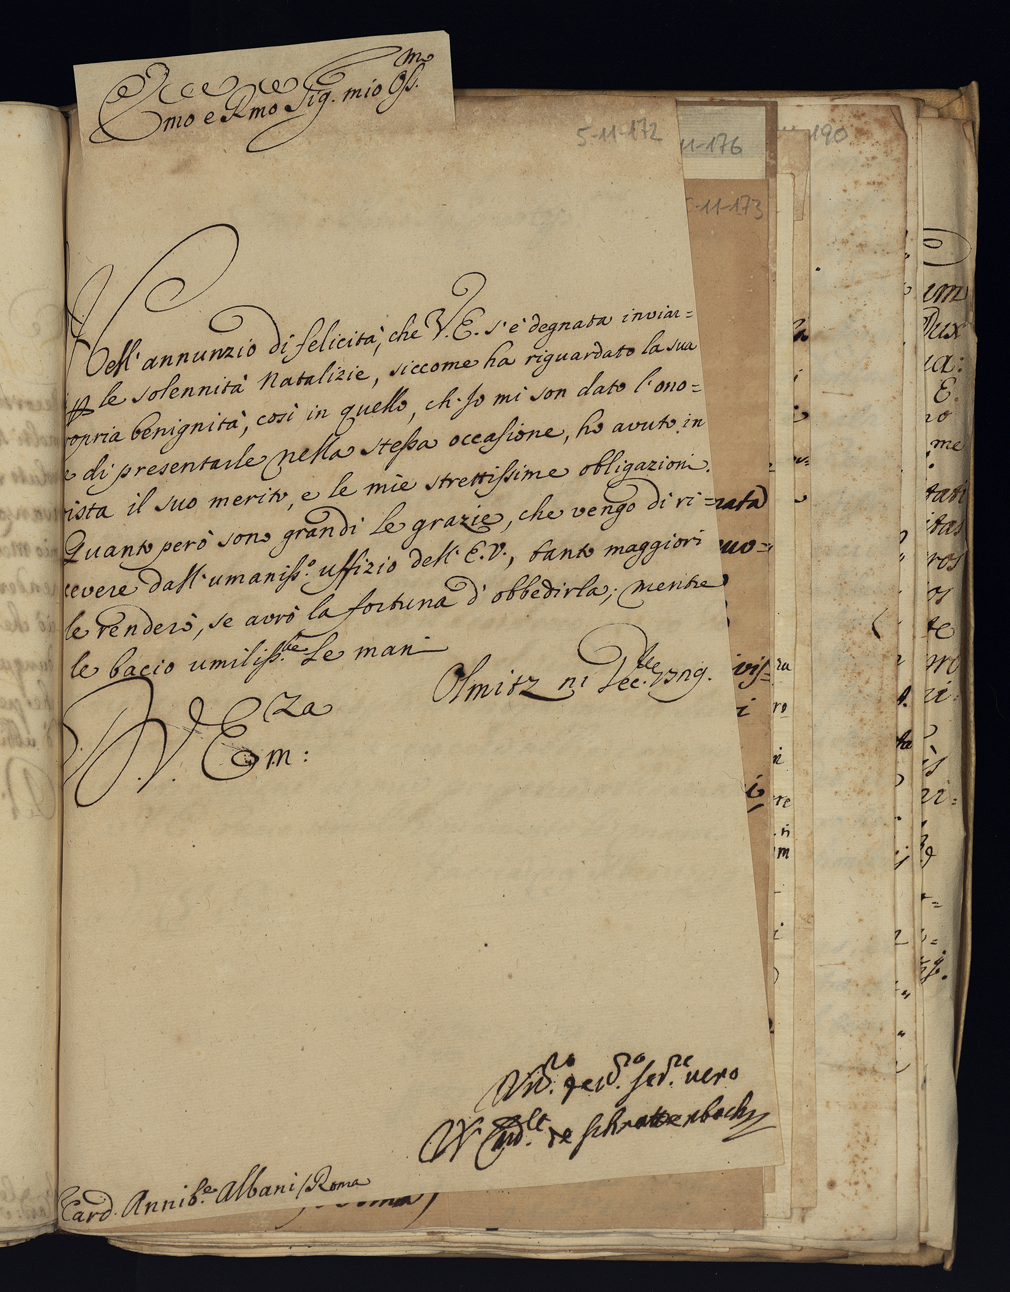 Emo e Rmo Sig. mio Oss.mo
5-11-172
11-176
190
5-11-173
Nell'annunzio di felicità, che V.E. s'è degnata inviar=
le solennità Natalizie, siccome ha riguardato la sua
ropria benignità, così in quello, ch'Io mi son dato l'ono=
e di presentarle nella stessa occasione, ho avuto in
vista il suo merito, e le mie strettissime obligazioni.
Quanto però sono grandi le grazie, che vengo di ri=
cevere dall'umaniss.o uffizio dell'E.V., tanto maggiori
le renderò, se avrò la fortuna d'obbedirla; mentre
le bacio umiliss.te le mani
Olmitz
V. Em:
za
vero
W. Card.l de Schrattenbach
Card. Annib.e Albani / Roma